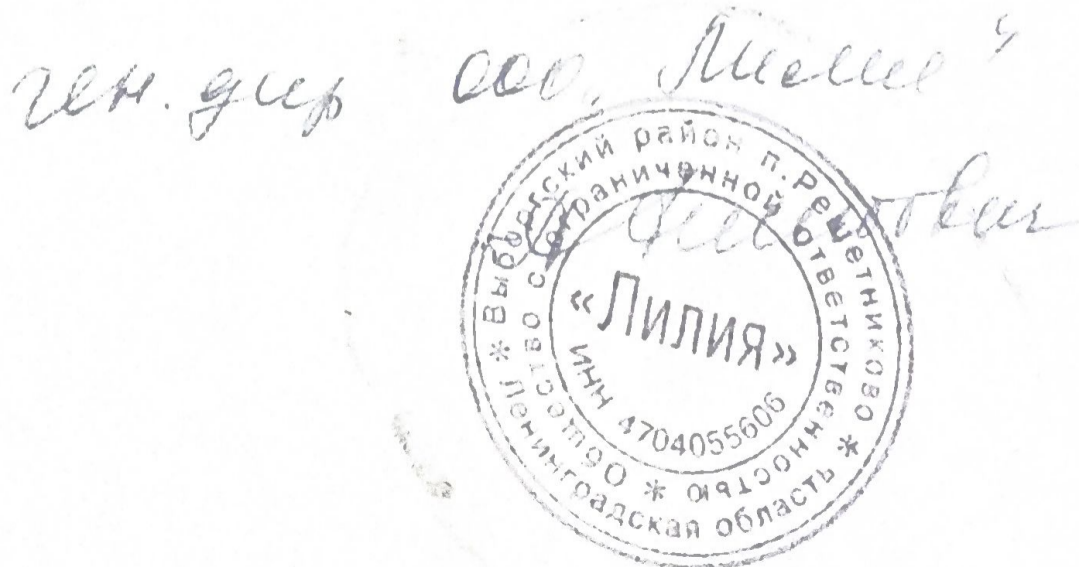 ген. дир ООО „Лилия“
* Ленинградская область * Выборгский район п. Решетниково
Общество с ограниченной ответственностью *
«Лилия»
ИНН 4704055606